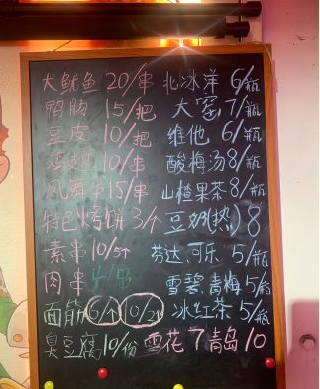 大鱿鱼 20/串 北冰洋 6/瓶
鸭肠 15/把 大窑 7/瓶
豆皮 10/把 维他 6/瓶
10/串 酸梅汤 8/瓶
15/串 山楂果茶 8/瓶
特色烤饼 3/个 豆奶(热) 8
素串 10/5个 芬达.可乐 5/瓶
肉串 4/串 雪碧.青梅 5/瓶
面筋 6/个 10/2个 冰红茶 5/瓶
臭豆腐 10/份 雪花 7 青岛 10